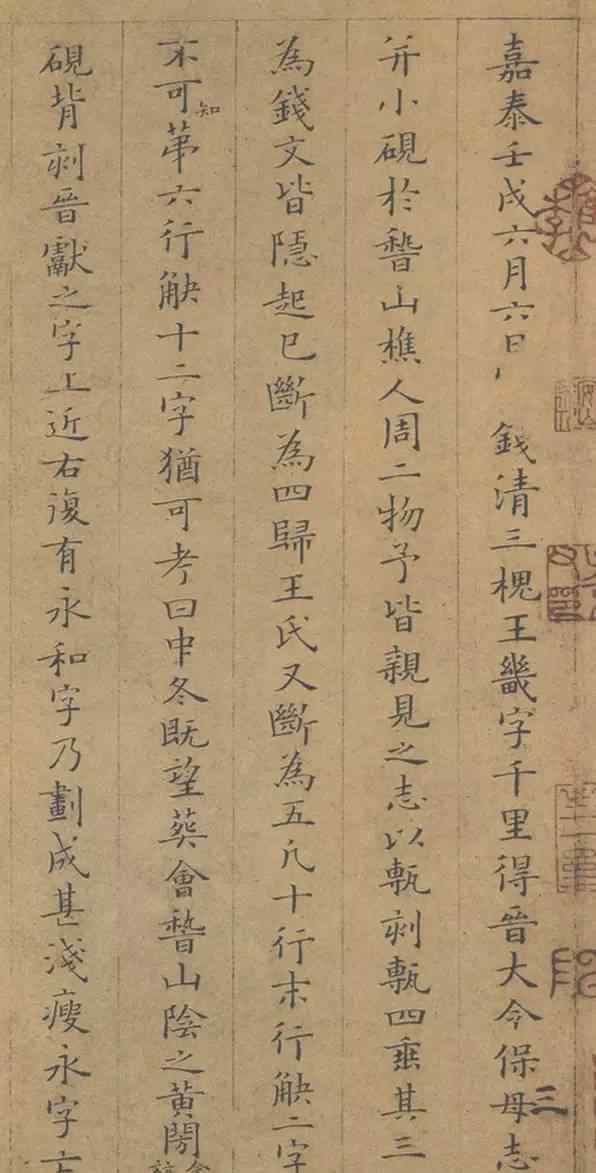 嘉泰壬戌六月六日錢清三槐王畿字千里得晉大令保母志
并小硯於稽山樵人周二物予皆親見之志以甎刻甎四垂其三
為錢文皆隱起已斷為四歸王氏又斷為五凡十行末行觖二字
不可知第六行觖十二字猶可考曰中冬既望葬會稽山陰之黃閍
硯背刻晉獻之字上近右復有永和字乃劃成甚淺瘦永字